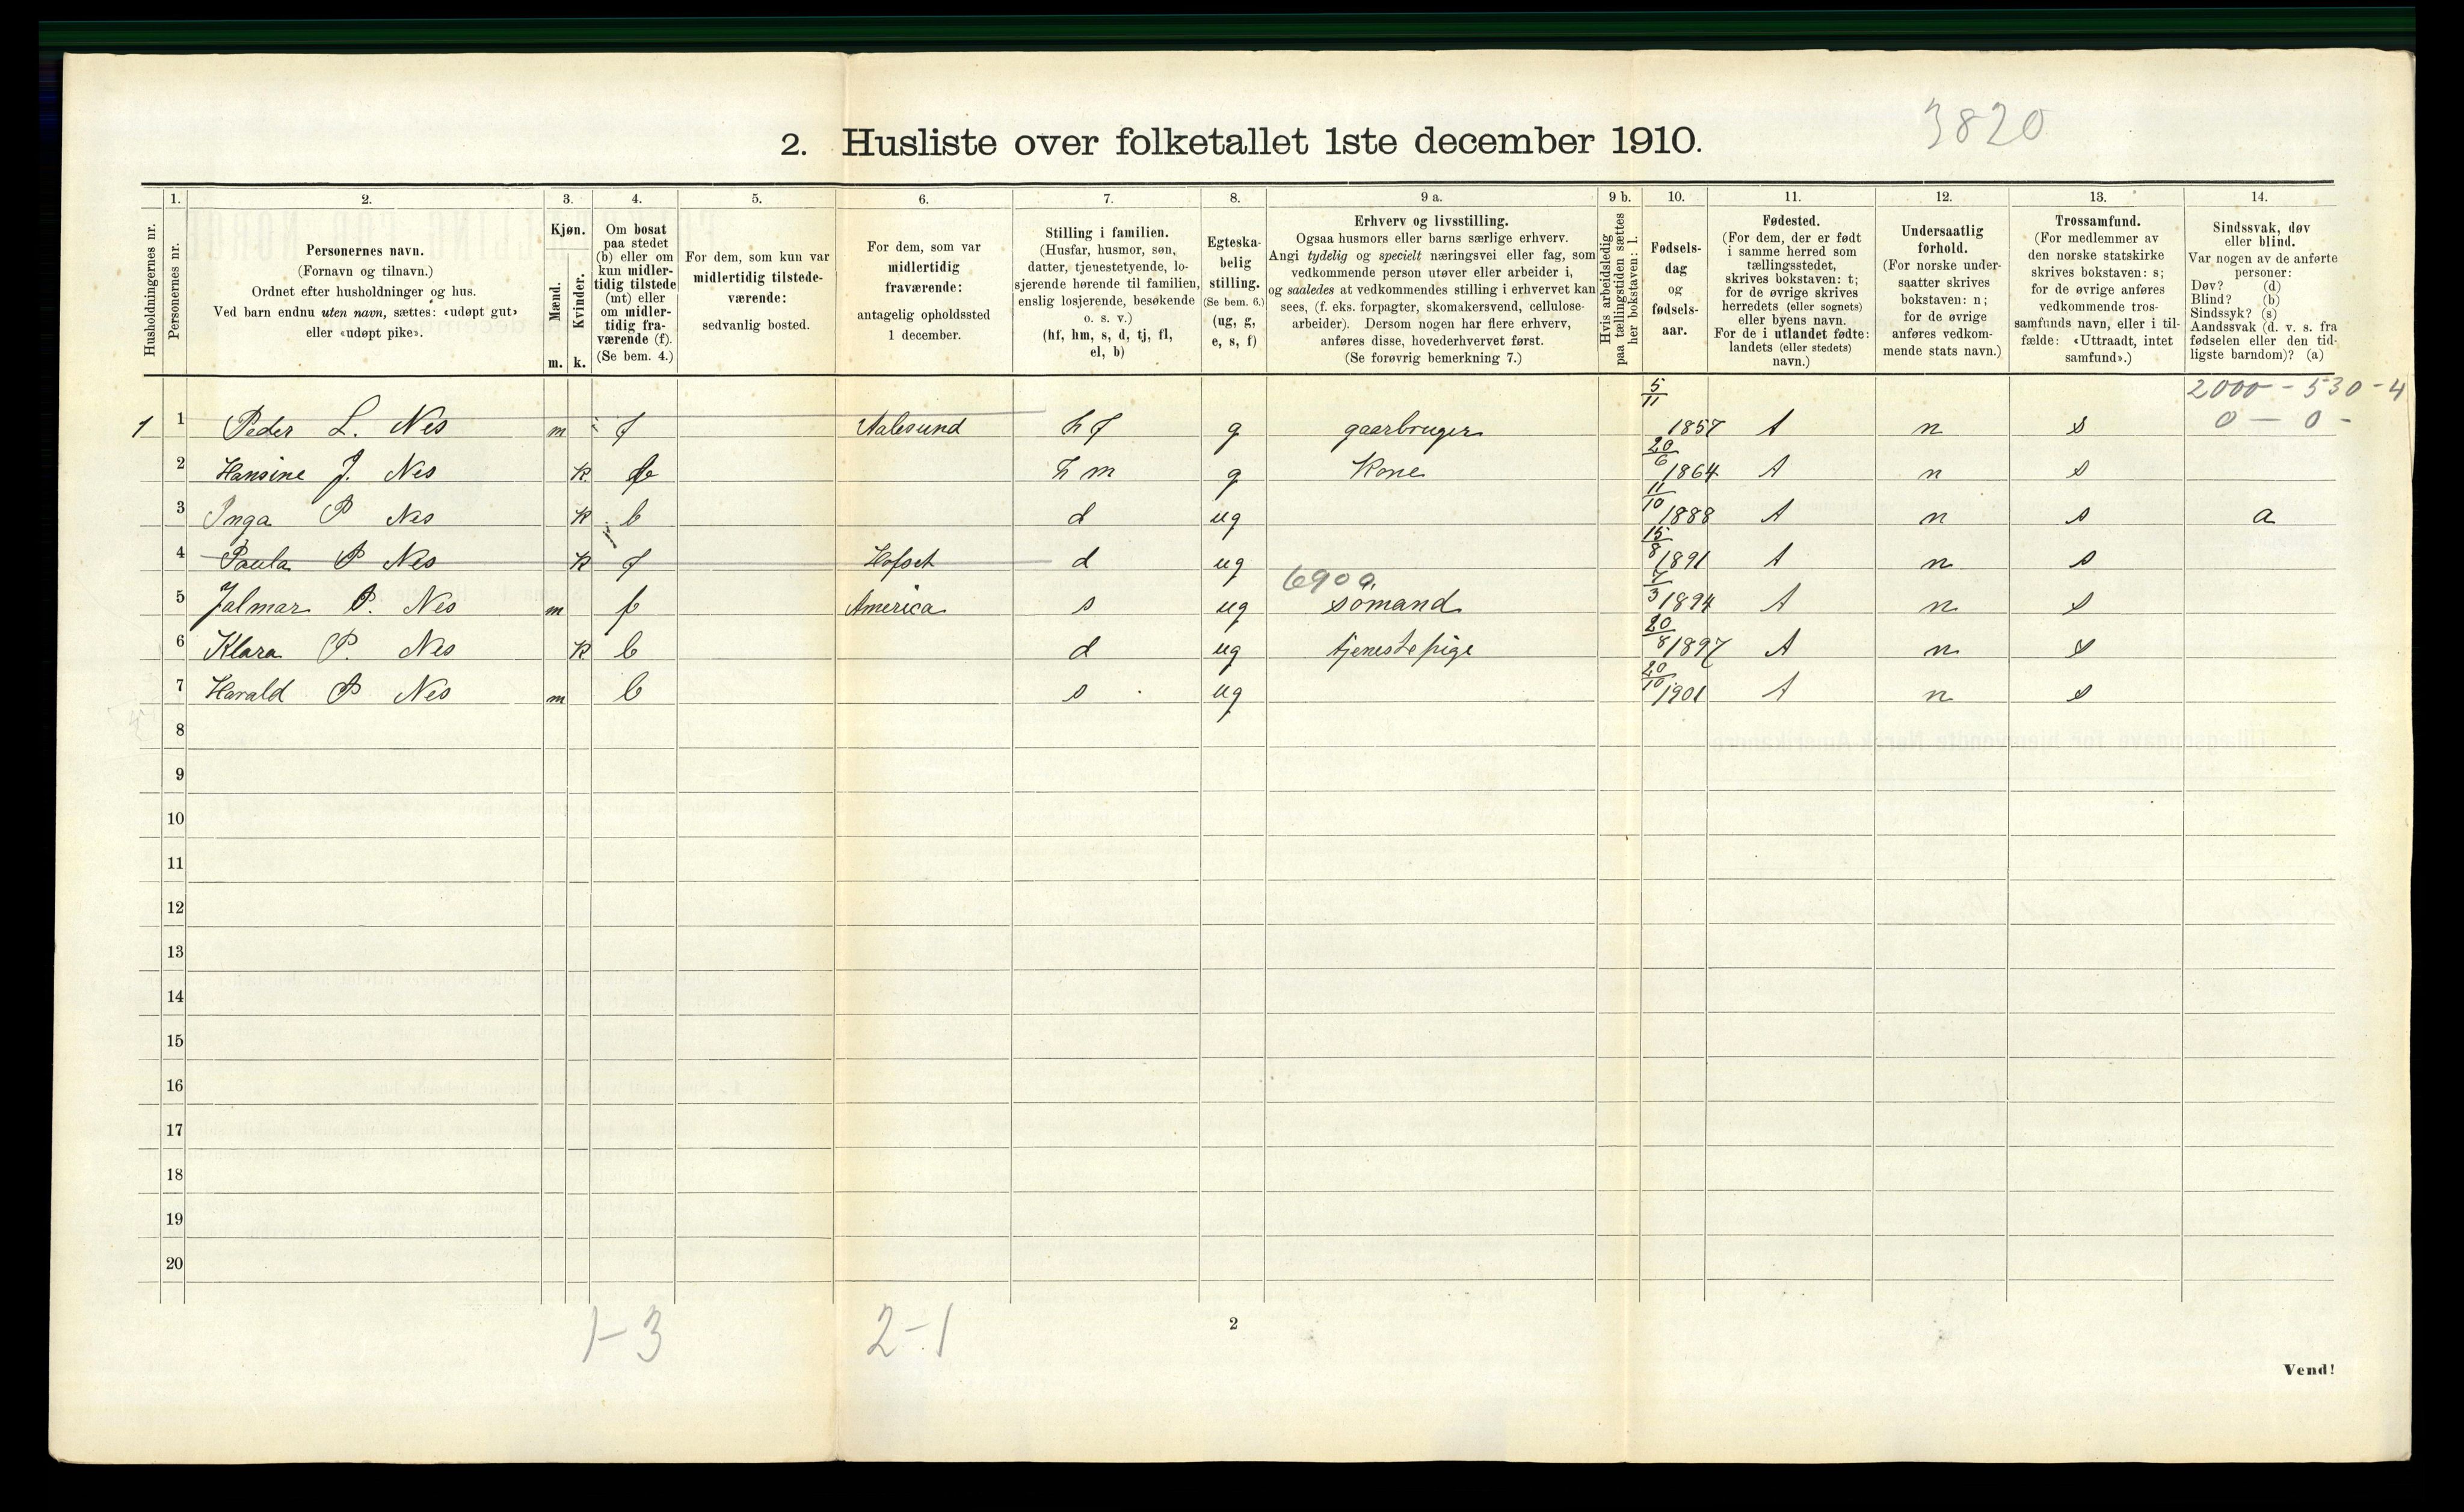 3820
2. Husliste over folketallet 1ste december 1910.
1. 2. 3. 4. 5. 6. 7. 8. 9 a. 9 b. 10. 11. 12. 13. 14.
Husholdningernes nr.
Personernes nr.
Personernes navn.
(Fornavn og tilnavn.)
Ordnet efter husholdninger og hus.
Ved barn endnu uten navn, sættes: «udøpt gut»
eller «udøpt pike».
Kjøn.
Mænd.
Kvinder.
m. k.
Om bosat
paa stedet
(b) eller om
kun midler-
tidig tilstede
(mt) eller
om midler-
tidig fra-
værende (f).
(Se bem. 4.)
For dem, som kun var
midlertidig tilstede-
værende:
sedvanlig bosted.
For dem, som var
midlertidig
fraværende:
antagelig opholdssted
1 december.
Stilling i familien.
(Husfar, husmor, søn,
datter, tjenestetyende, lo-
sjerende hørende til familien,
enslig losjerende, besøkende
o. s. v.)
(hf, hm, s, d, tj, fl,
el, b)
Egteska-
belig
stilling.
(Se bem. 6.)
(ug, g,
e, s, f)
Erhverv og livsstilling.
Ogsaa husmors eller barns særlige erhverv.
Angi tydelig og specielt næringsvei eller fag, som
vedkommende person utøver eller arbeider i,
og saaledes at vedkommendes stilling i erhvervet kan
sees, (f. eks. forpagter, skomakersvend, cellulose-
arbeider). Dersom nogen har flere erhverv,
anføres disse, hovederhvervet først.
(Se forøvrig bemerkning 7.)
Hvis arbeidsledig
paa tællingstiden sættes
her bokstaven: l.
Fødsels-
dag
og
fødsels-
aar.
Fødested.
(For dem, der er født
i samme herred som
tællingsstedet,
skrives bokstaven: t;
for de øvrige skrives
herredets (eller sognets)
eller byens navn.
For de i utlandet fødte:
landets (eller stedets)
navn.)
Undersaatlig
forhold.
(For norske under-
saatter skrives
bokstaven: n;
for de øvrige
anføres vedkom-
mende stats navn.)
Trossamfund.
(For medlemmer av
den norske statskirke
skrives bokstaven: s;
for de øvrige anføres
vedkommende tros-
samfunds navn, eller i til-
fælde: «Uttraadt, intet
samfund».)
Sindssvak, døv
eller blind.
Var nogen av de anførte
personer:
Døv? (d)
Blind? (b)
Sindssyk? (s)
Aandssvak (d. v. s. fra
fødselen eller den tid-
ligste barndom)? (a)
2000 - 530 - 4
0 - 0 -
1 1 Peder L. Nes m f Aalesund hf g gaarbruger 5/11 1857 t n s
2 Hansine J. Nes k b hm g Kone 20/6 1864 t n s
3 Inga P Nes k b d ug 11/10 1888 t n s a
4 Paula P Nes k f Hofset d ug 15/8 1891 t n s
6900
5 Jalmar P. Nes m f America s ug sömand 7/3 1894 t n s
6 Klara P. Nes k b d ug tjenestepige 20/8 1897 t n s
7 Harald P Nes m b s ug 20/10 1901 t n s
8
9
10
11
12
13
14
15
16
17
18
19
20
1-3 2-1
2
Vend!